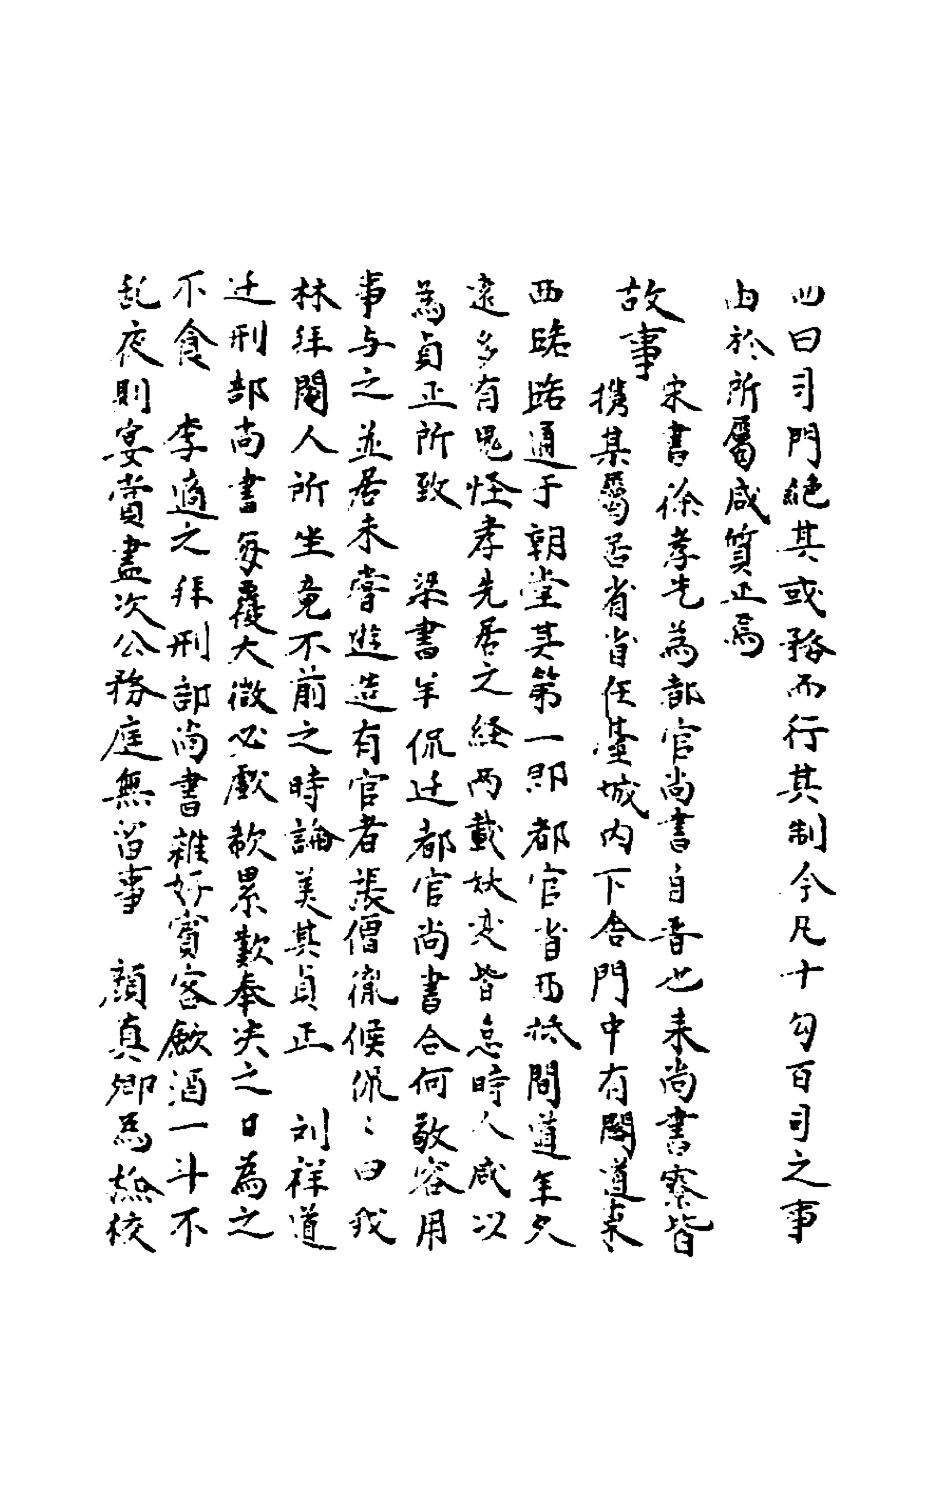 四曰司門総其或務而行其制令凡十勾百司之事
由於所属咸質正焉
故事
宋書徐孝先為都官尚書自晋也来尚書寮皆
携某属居省省任臺城内下舎門中有閣道東
西路路通于朝堂其第一即都官省西抵閣道年久
遠多有鬼怪孝先居之経両載妖変皆息時人咸以
為貞正所致　梁書羊侃迁都官尚書合何敬容用
事与之並居未嘗遊造有官者張僧胤候侃〻曰我
林拝閹人所坐竟不前之時論美其貞正　刘祥道
迁刑部尚書毎覆大徴必歔欷累歎奉决之日為之
不食　李適之拝刑部尚書雑好賓客飲酒一斗不
乱夜則宴賞盡次公務庭無留事　顔真卿為撿校